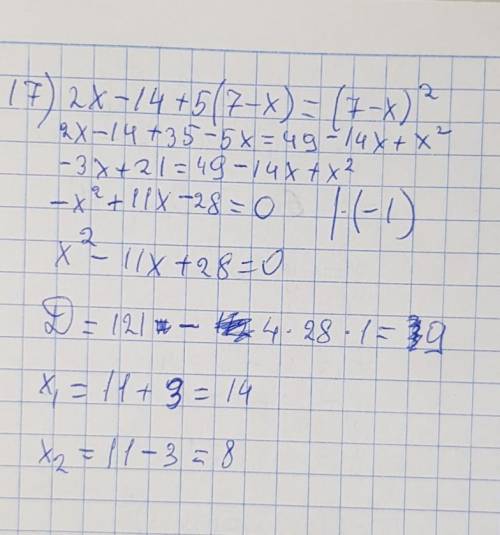 17) 2x-14+5(7-x)=(7-x)²
2x-14+35-5x=49-14x+x²
-3x+21=49-14x+x²
-x²+11x-28=0 |·(-1)
x²-11x+28=0
D=121-4·28·1=9
x₁=11+3=14
x₂=11-3=8